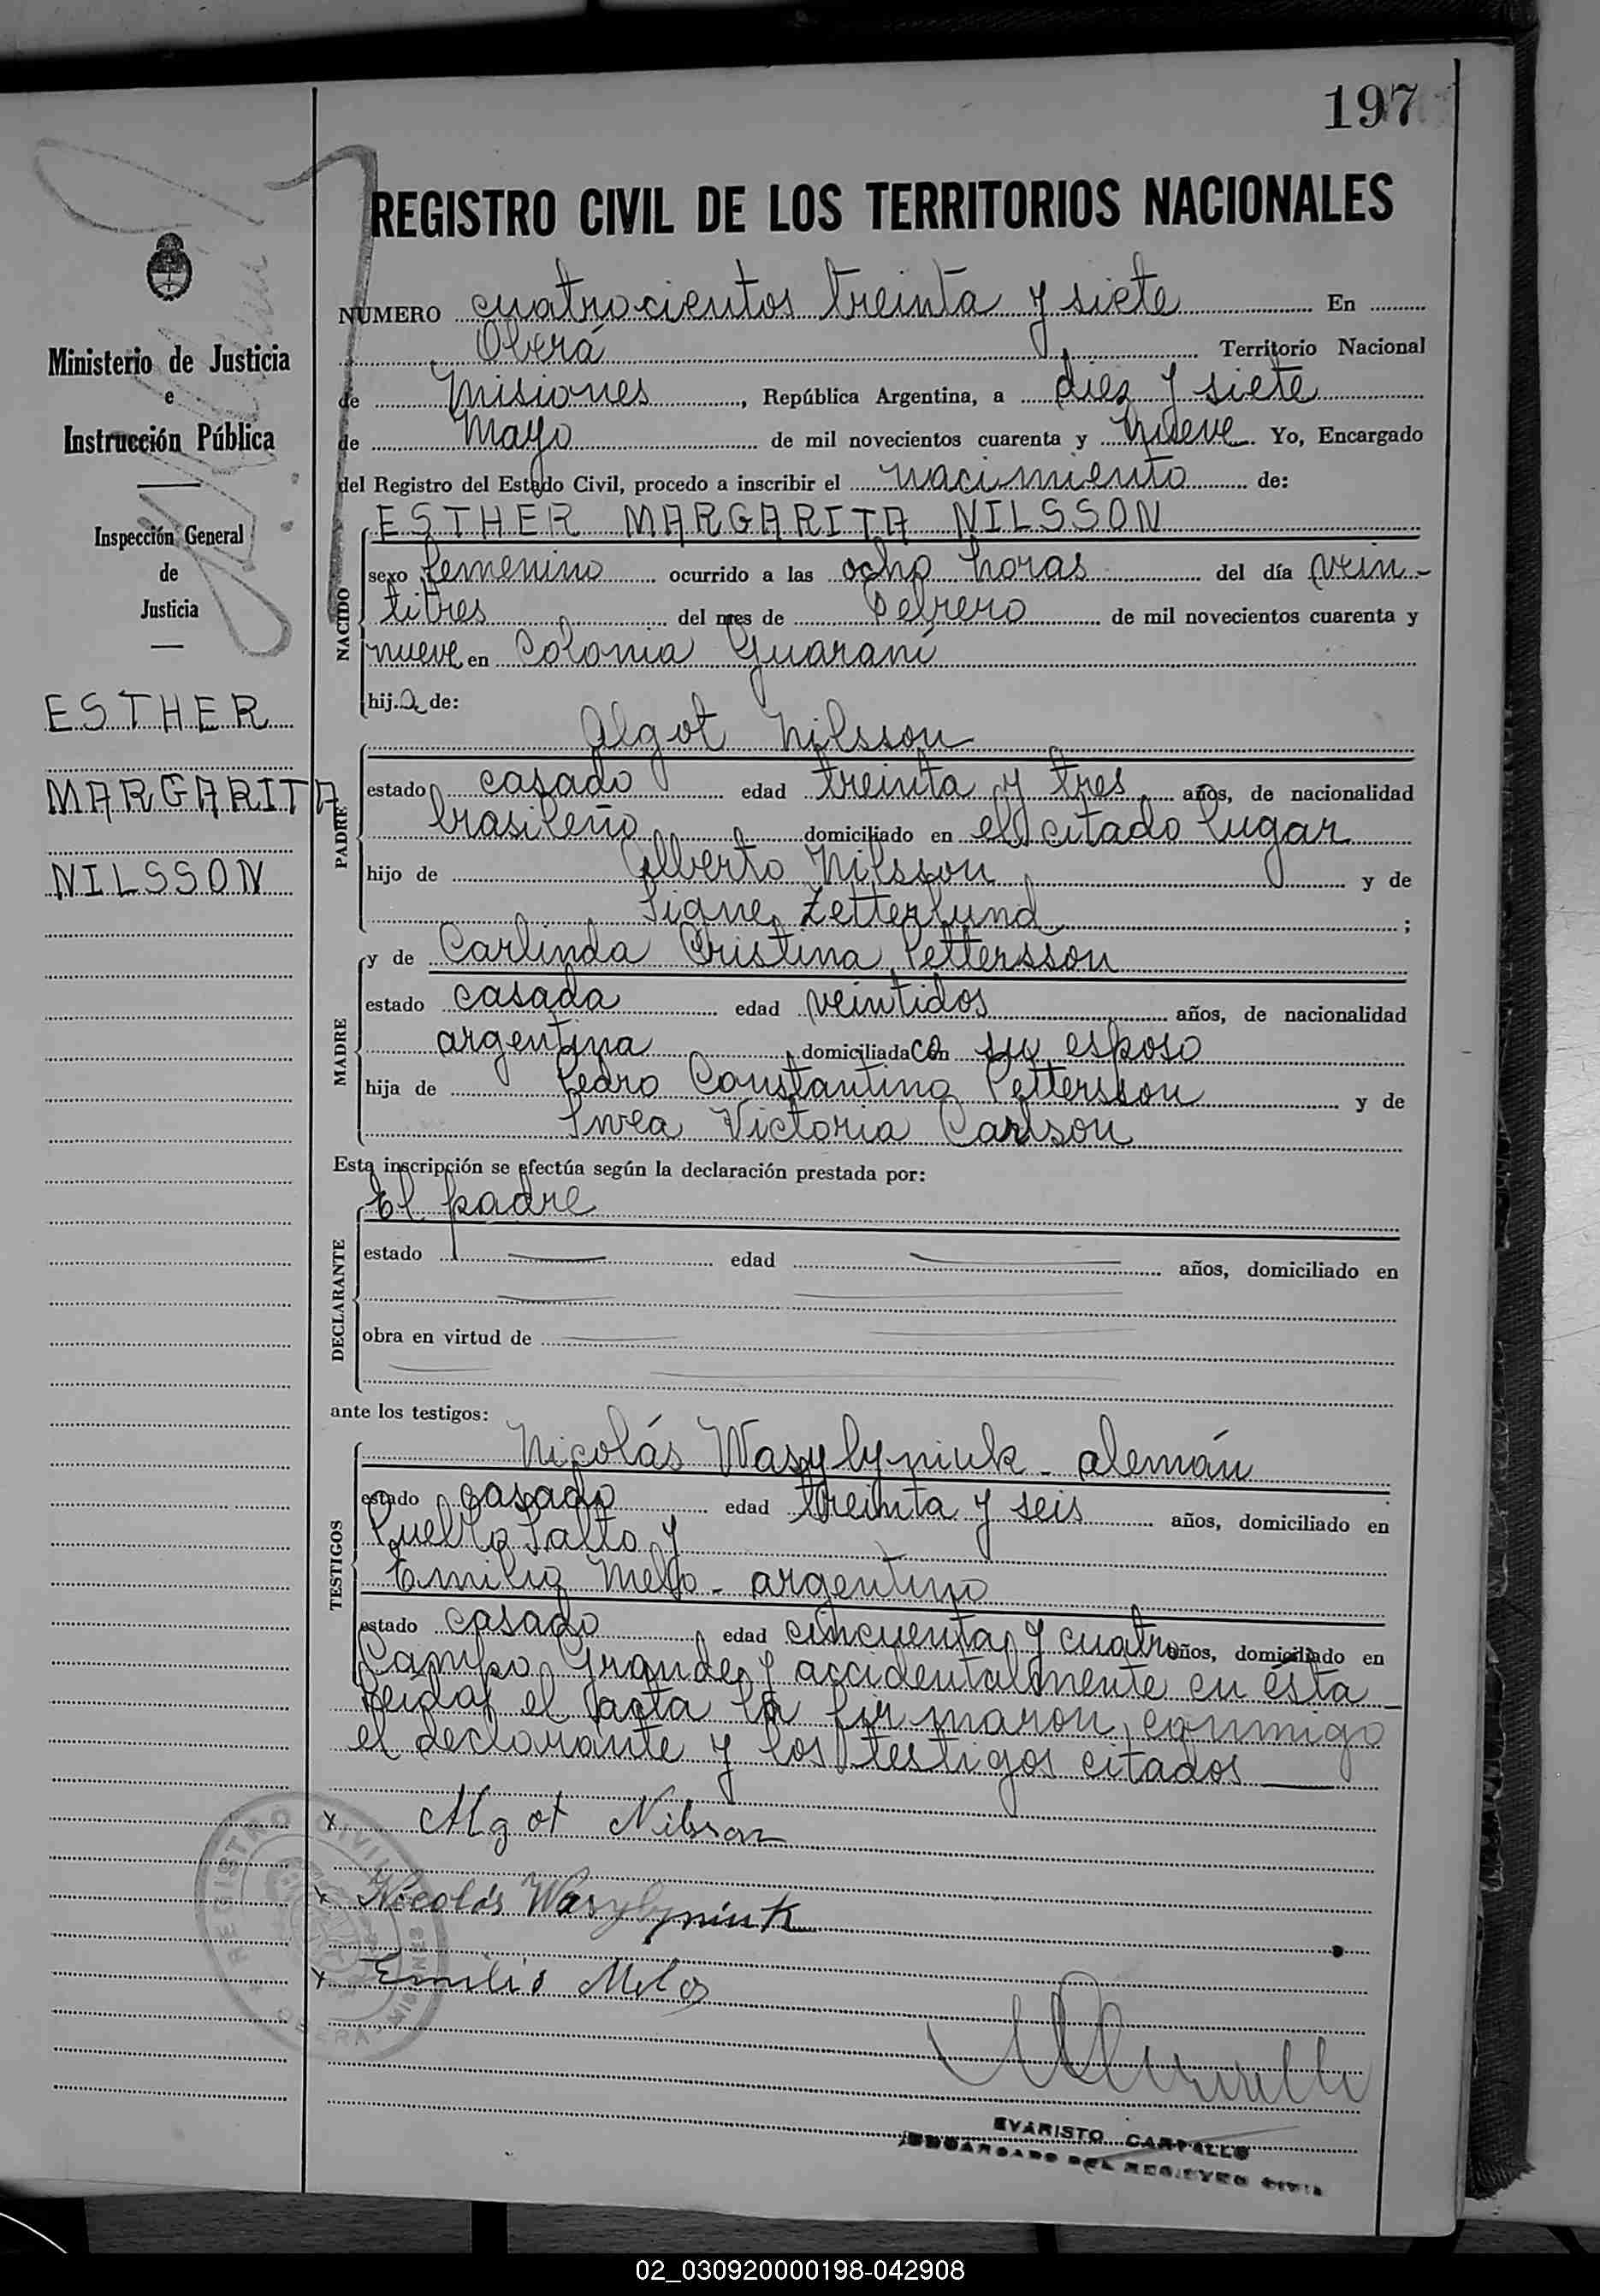 197
REGISTRO CIVIL DE LOS TERRITORIOS NACIONALES
Ministerio de Justicia
e
Instrucción Pública
Inspección General
de
Justicia
ESTHER
MARGARITA
NILSSON
NUMERO cuatrocientos treinta y siete En
Oberá Territorio Nacional
de Misiones, República Argentina, a diez y siete
de Mayo de mil novecientos cuarenta y nueve. Yo, Encargado
del Registro del Estado Civil, procedo a inscribir el nacimiento de:
NACIDO
ESTHER MARGARITA NILSSON
sexo femenino ocurrido a las ocho horas del día vein-
titres del mes de Febrero de mil novecientos cuarenta y
nueve en Colonia Guaraní
hija de:
PADRE
Algot Nilsson
estado casado edad treinta y tres años, de nacionalidad
brasileño domiciliado en el citado lugar
hijo de Alberto Nilsson y de
Signe Zetterlund ;
MADRE
y de Carlinda Cristina Pettersson
estado casada edad veintidos años, de nacionalidad
argentina domiciliada con su esposo
hija de Pedro Constantino Pettersson y de
Svea Victoria Carlson
Esta inscripción se efectúa según la declaración prestada por:
DECLARANTE
El padre
estado edad años, domiciliado en
obra en virtud de
ante los testigos:
TESTIGOS
Nicolás Wasylyniuk - alemán
estado casado edad treinta y seis años, domiciliado en
Salto y
Emilio Melo - argentino
estado casado edad cincuenta y cuatro años, domiciliado en
Campo Grande y accidentalmente en ésta -
Leida el acta la firmaron conmigo
el declarante y los testigos citados
x Algot Nilsson
x Nicolás Wasylyniuk
x Emilio Melo
REGISTRO CIVIL
OBERA
EVARISTO CARVALLO
ENCARGADO DEL REGISTRO CIVIL
02_030920000198-042908